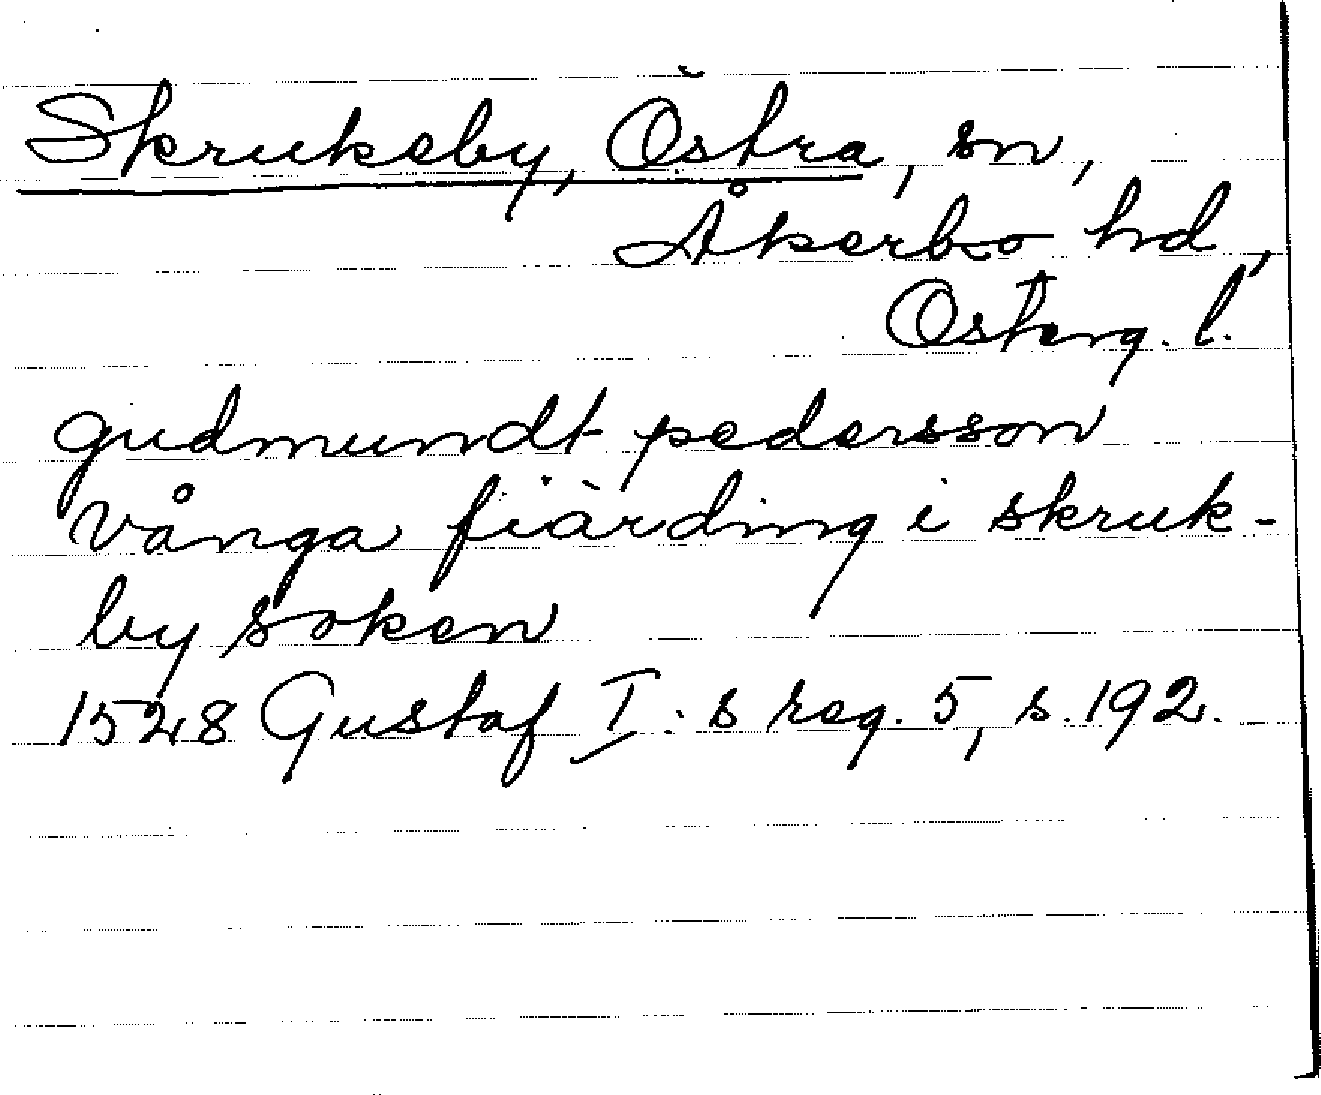 Skrukeby, Östra, sn,
Åkerbo hd,
Österg. l.
gudmundt pedersson
vånga fiärding i skruk-
by soken
1528 Gustaf I:s reg. 5, s. 192.